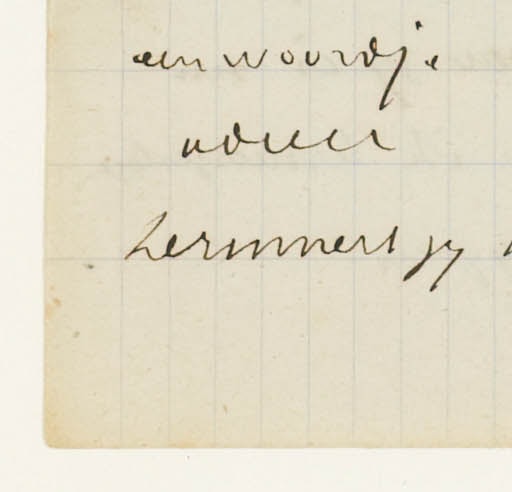 een woordje
adieu
herinnert gy